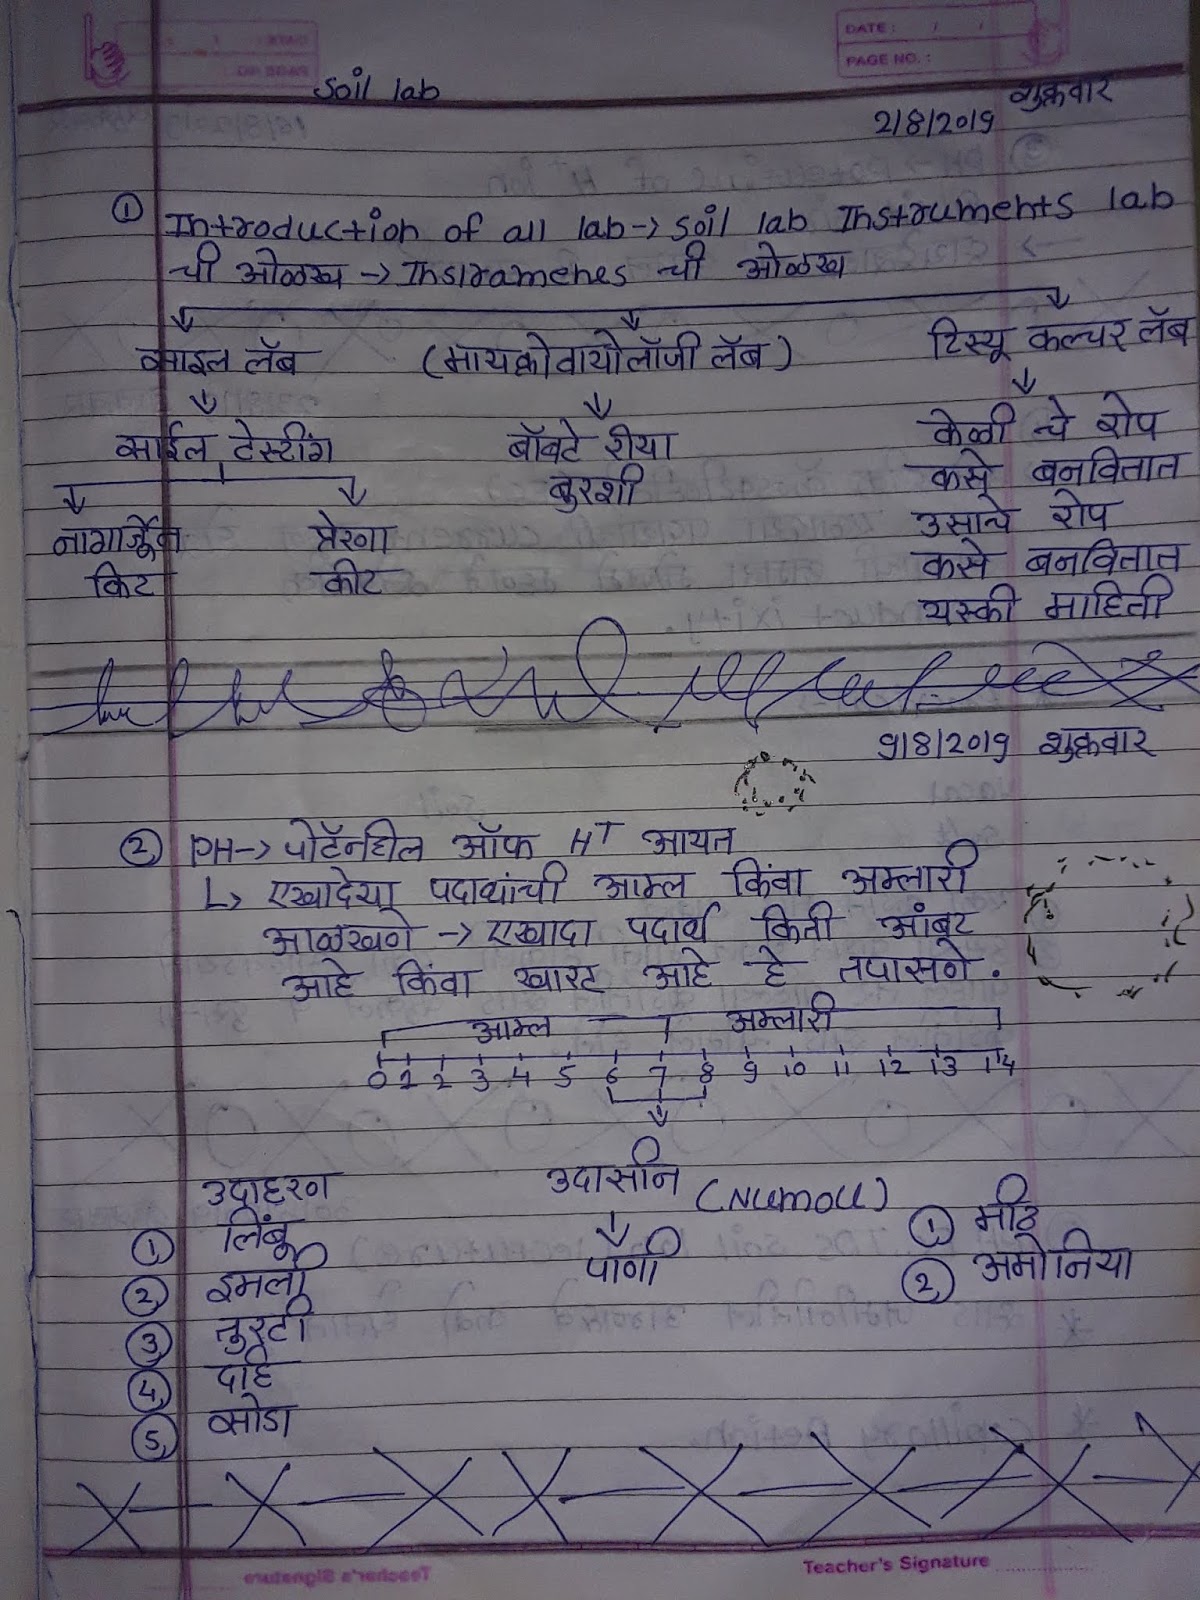 DATE: / /
PAGE NO.:
Soil lab
शुक्रवार
2/8/2019
① Introduction of all lab → soil lab Instruments lab
ची ओळख → Instramenes ची ओळख
साइल लॅब (मायक्रोबायोलॉजी लॅब) टिस्यू कल्चर लॅब
साईल टेस्टींग बॉक्टेरीया केळी चे रोप
बुरशी कसे बनवितात
नागार्जून प्रेरणा उसाचे रोप
किट कीट कसे बनवितात
यस्की माहिती
9/8/2019 शुक्रवार
② PH → पोटॅनशील ऑफ H+ आयन
↳ एखादया पदार्थाची आम्ल किंवा अम्लारी
आळखणे → एखादा पदार्थ किती आंबट
आहे किंवा खारट आहे हे तपासणे.
आम्ल अम्लारी
0 1 2 3 4 5 6 7 8 9 10 11 12 13 14
उदाहरण उदासीन (Numoll)
① लिंबू पाणी ① मीठ
② इमली ② अमोनिया
③ तुरटी
④ दहि
⑤ सोडा
Teacher's Signature